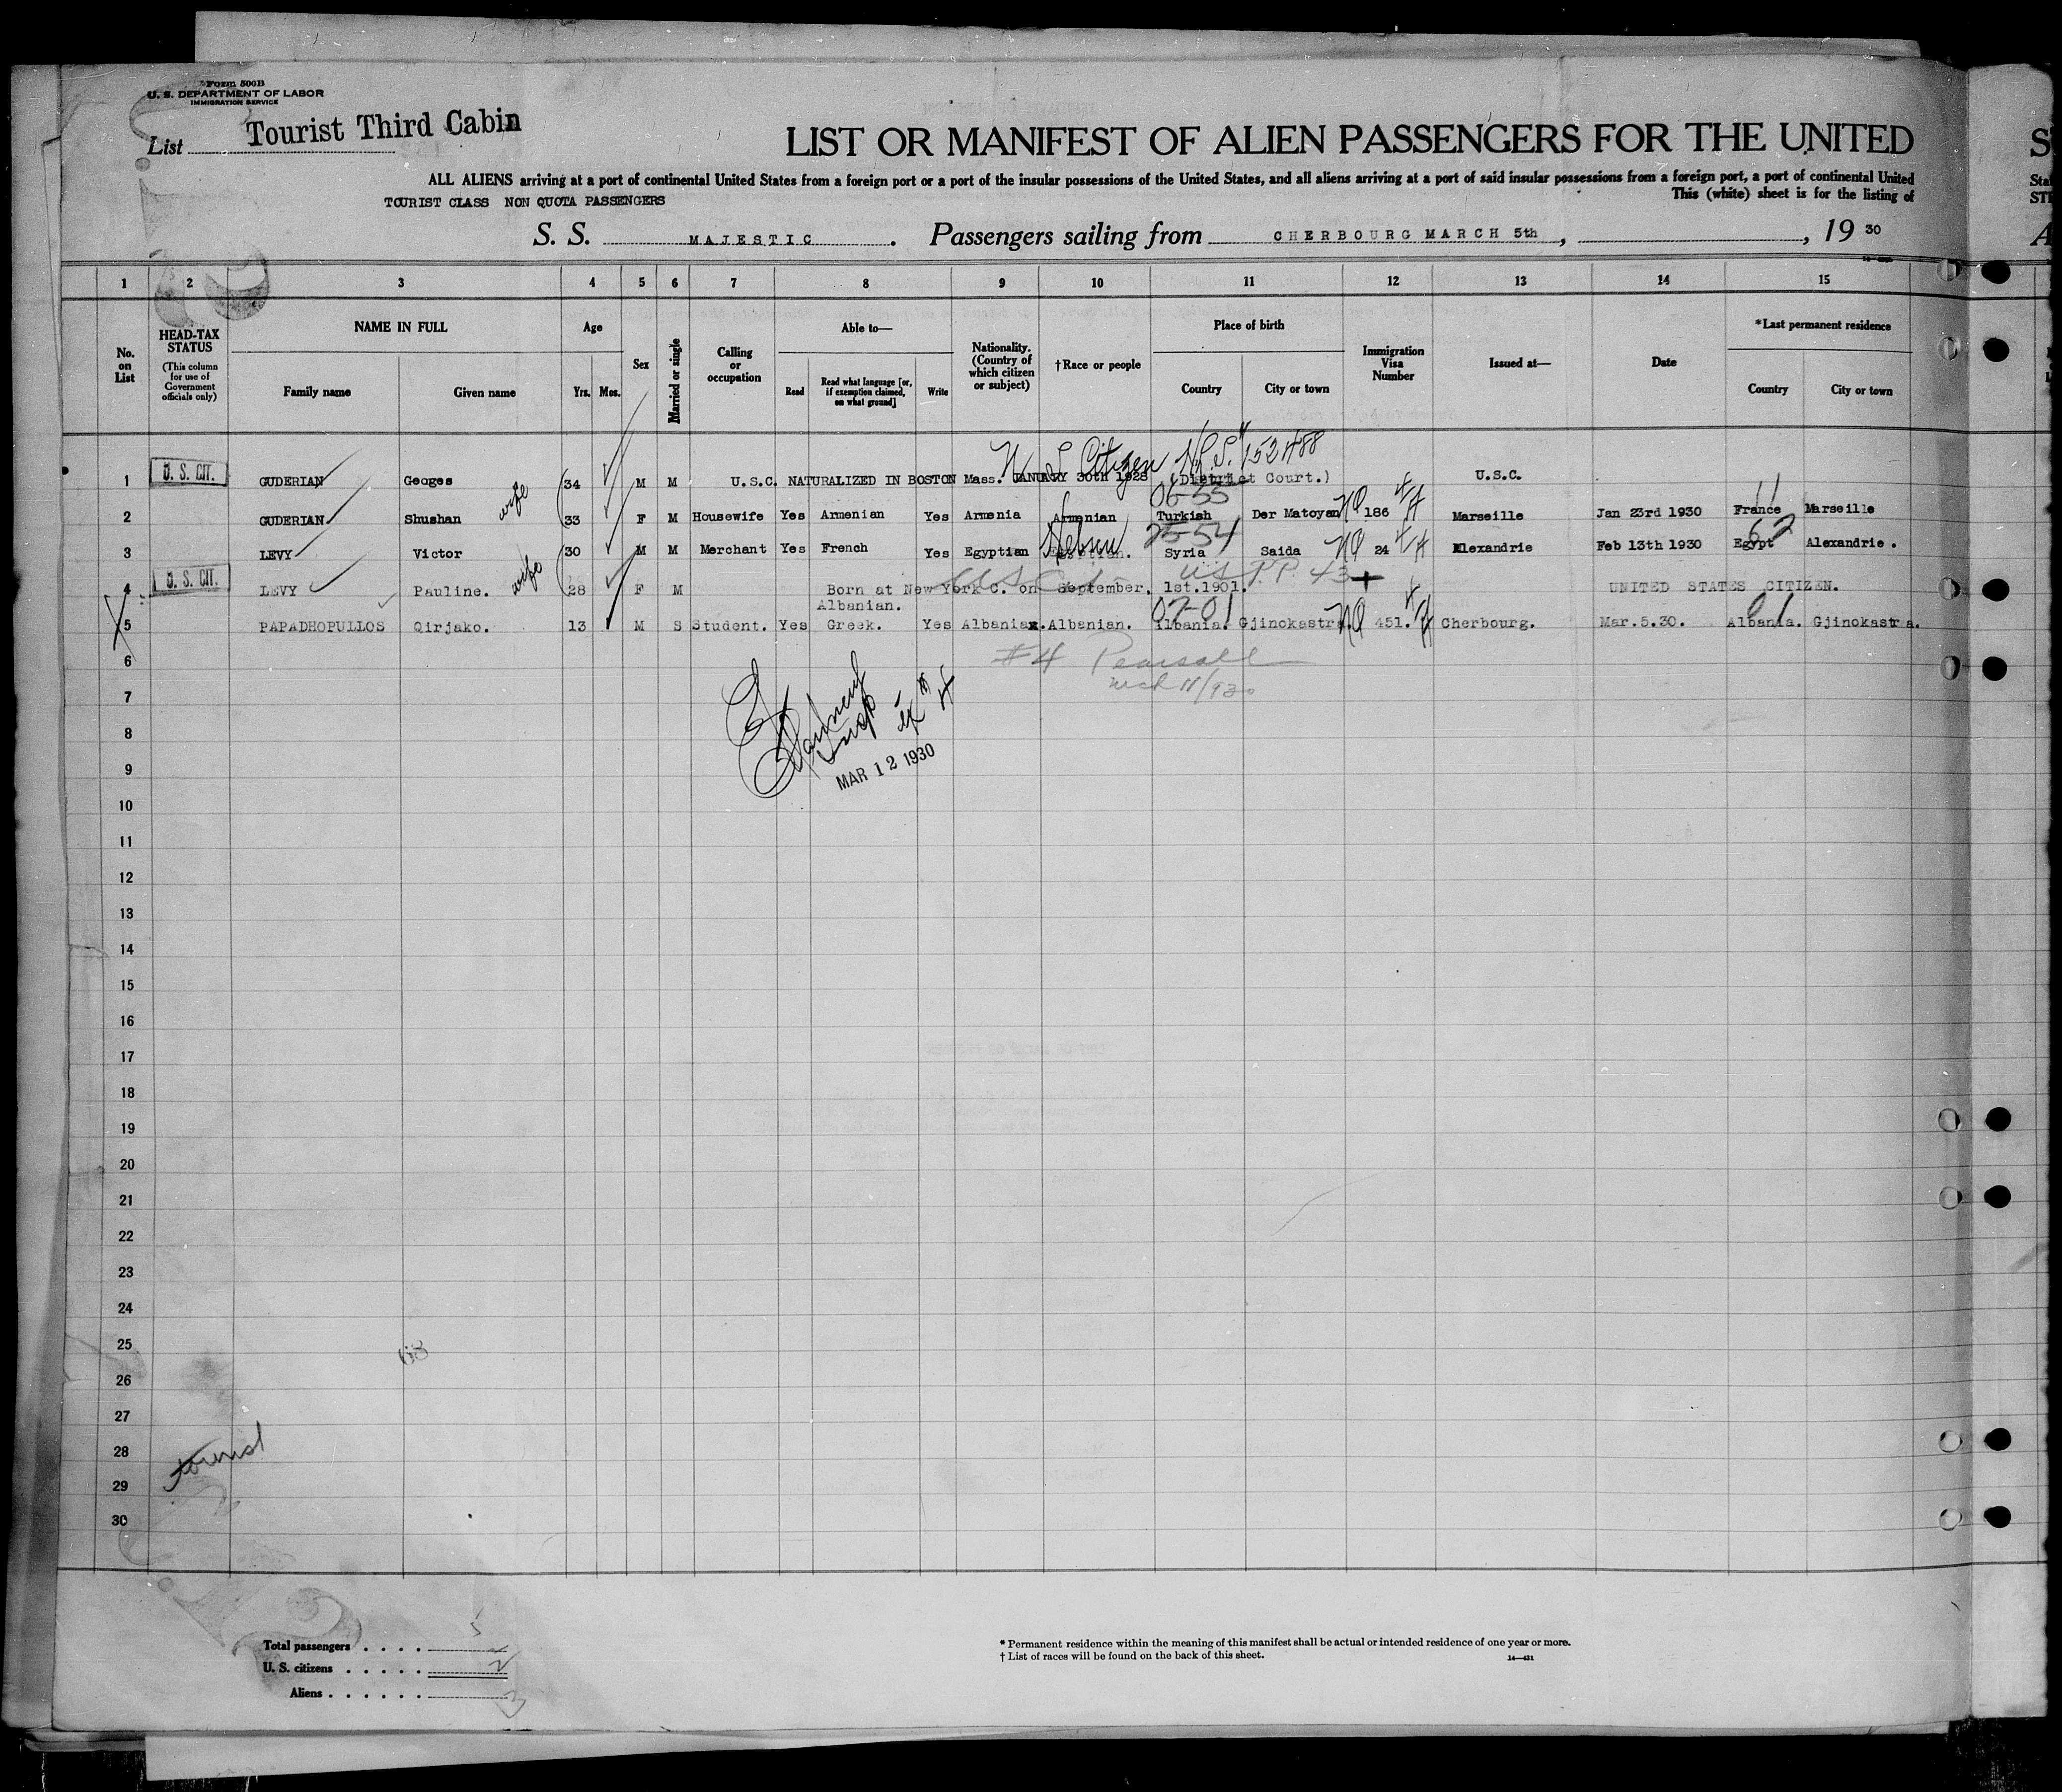 Form 500B
U. S. DEPARTMENT OF LABOR
IMMIGRATION SERVICE
List Tourist Third Cabin
LIST OR MANIFEST OF ALIEN PASSENGERS FOR THE UNITED
ALL ALIENS arriving at a port of continental United States from a foreign port or a port of the insular possessions of the United States, and all aliens arriving at a port of said insular possessions from a foreign port, a port of continental United
TOURIST CLASS NON QUOTA PASSENGERS
This (white) sheet is for the listing of
S. S. MAJESTIC . Passengers sailing from CHERBOURG MARCH 5th , , 19 30
1 2 3 4 5 6 7 8 9 10 11 12 13 14 15
No. on List
HEAD-TAX STATUS
(This column for use of Government officials only)
NAME IN FULL
Family name Given name
Age
Yrs. Mos.
Sex
Married or single
Calling or occupation
Able to—
Read Read what language [or, if exemption claimed, on what ground] Write
Nationality. (Country of which citizen or subject)
†Race or people
Place of birth
Country City or town
Immigration Visa Number
Issued at—
Date
*Last permanent residence
Country City or town
Citizen 152488
1 U. S. CIT. GUDERIAN Georges 34 M M U.S.C. NATURALIZED IN BOSTON Mass. JANUARY 30th 1928 (District Court.) U.S.C.
06-55
2 GUDERIAN Shushan wife 33 F M Housewife Yes Armenian Yes Armenia Armenian Turkish Der Matoyan NQ 186 Marseille Jan 23rd 1930 France 11 Marseille
25-54
3 LEVY Victor 30 M M Merchant Yes French Yes Egyptian Hebrew Syria Saida NQ 24 Alexandrie Feb 13th 1930 Egypt 62 Alexandrie.
US Cit US PP. 43
4 U. S. CIT. LEVY Pauline. wife 28 F M Born at New York C. on September, 1st.1901. UNITED STATES CITIZEN.
Albanian. 07-01
5 PAPADHOPULLOS Qirjako. 13 M S Student. Yes Greek. Yes Albanian. Albanian. Albania. Gjinokastra. NQ 451. Cherbourg. Mar.5.30. Albania. 01 Gjinokastra.
6 #4 Pearsall
7 Mch 11/930
8
9 MAR 12 1930
10
11
12
13
14
15
16
17
18
19
20
21
22
23
24
25
26
27
28
29
30
Total passengers . . . . 5
U. S. citizens . . . . . 2
Aliens . . . . . . 3
* Permanent residence within the meaning of this manifest shall be actual or intended residence of one year or more.
† List of races will be found on the back of this sheet. 14—431